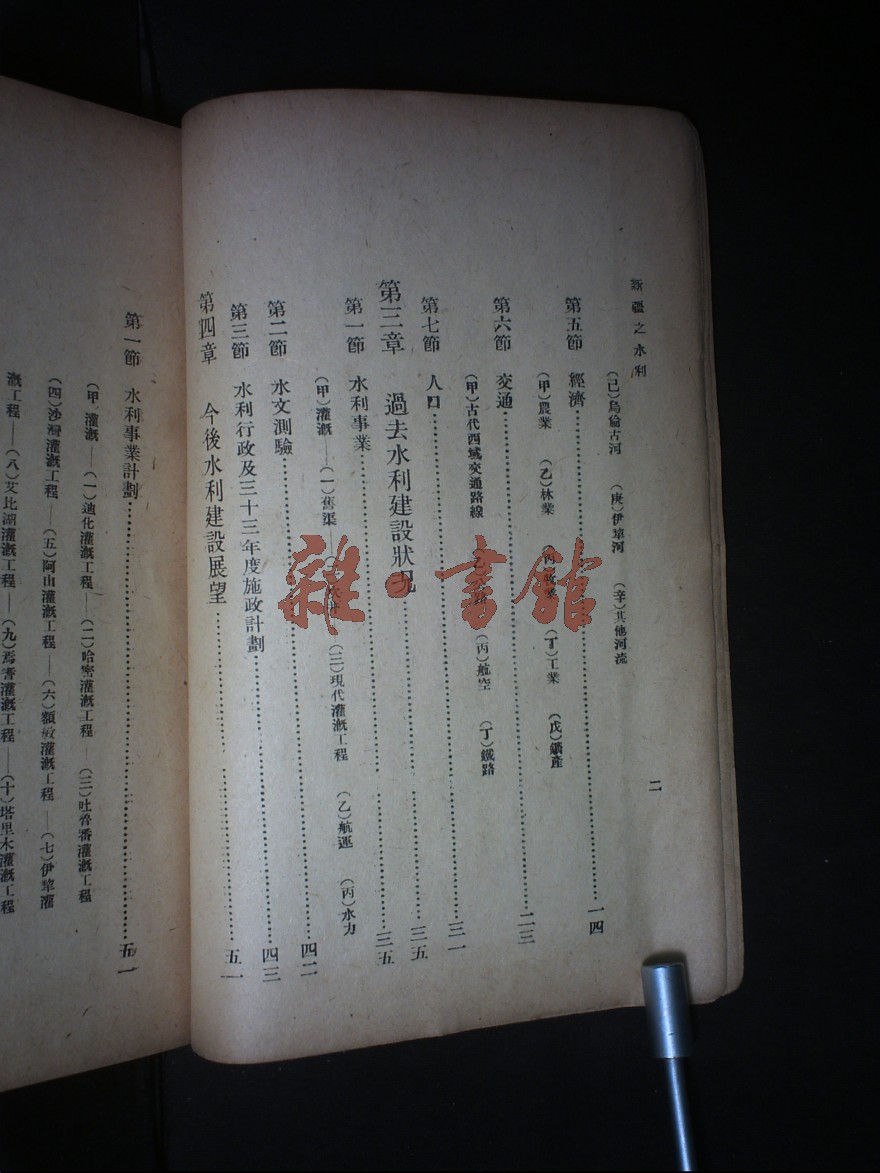 新疆之水利
二
(己)烏倫古河 (庚)伊犂河 (辛)其他河流
第五節 經濟……一四
(甲)農業 (乙)林業 (丙)牧業 (丁)工業 (戊)鑛產
第六節 交通……二三
(甲)古代西域交通路線 (丙)航空 (丁)鐵路
第七節 人口……三一
第三章 過去水利建設狀況……三五
第一節 水利事業……三五
(甲)灌漑——(一)舊渠 (三)現代灌漑工程 (乙)航運 (丙)水力
第二節 水文測驗……四二
第三節 水利行政及三十三年度施政計劃……四三
第四章 今後水利建設展望……五一
第一節 水利事業計劃……五一
(甲)灌漑——(一)迪化灌漑工程——(二)哈密灌漑工程——(三)吐魯番灌漑工程
(四)沙灣灌漑工程——(五)阿山灌漑工程——(六)額敏灌漑工程——(七)伊犂灌
漑工程——(八)艾比湖灌漑工程——(九)焉耆灌漑工程——(十)塔里木灌漑工程
雜·書館